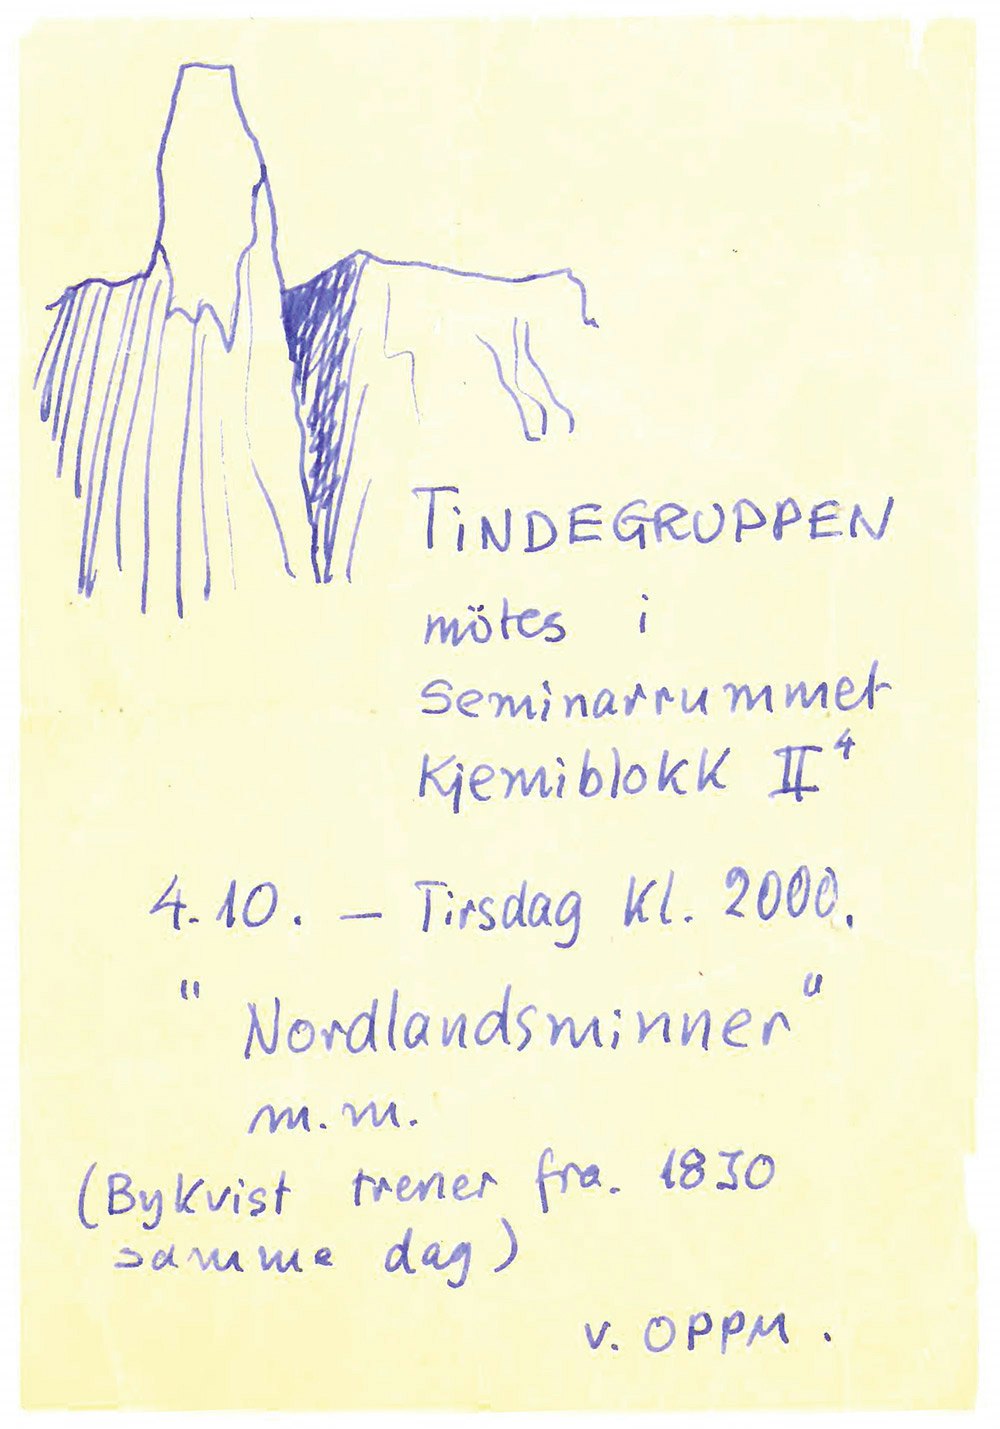 TiNDEGRUPPEN
mötes i
Seminarrummet
Kjemiblokk II⁴
4.10. — Tirsdag kl. 2000.
"Nordlandsminner"
m.m.
(Bykvist trener fra. 1830
samme dag)
v. OPPM.